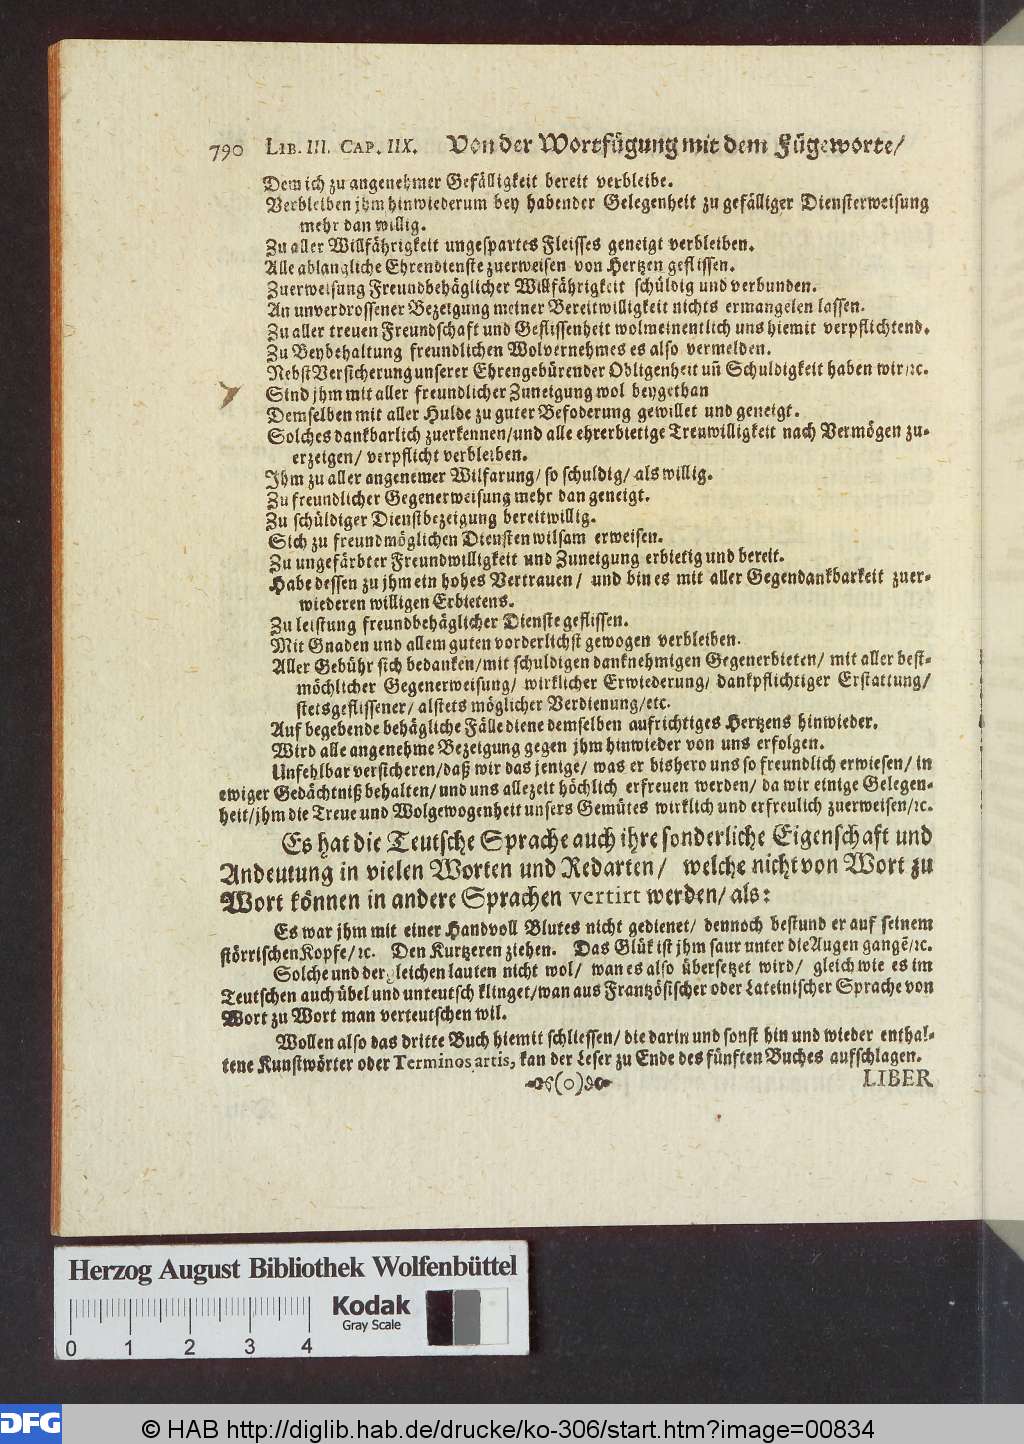 790 LIB. III. CAP. IIX. Von der Wortfügung mit dem Fügeworte/
Dem ich zu angenehmer Gefälligkeit bereit verbleibe.
Verbleiben jhm hinwiederum bey habender Gelegenheit zu gefälliger Diensterweisung
mehr dan willig.
Zu aller Willfährigkeit ungespartes Fleisses geneigt verbleiben.
Alle ablangliche Ehrendienste zuerweisen von Hertzen geflissen.
Zuerweisung Freundbehäglicher Willfährigkeit schüldig und verbunden.
An unverdrossener Bezeigung meiner Bereitwilligkeit nichts ermangelen lassen.
Zu aller treuen Freundschaft und Geflissenheit wolmeinentlich uns hiemit verpflichtend.
Zu Beybehaltung freundlichen Wolvernehmes es also vermelden.
Nebst Versicherung unserer Ehrengebürender Obligenheit uñ Schuldigkeit haben wir/ꝛc.
Sind jhm mit aller freundlicher Zuneigung wol beygethan
Demselben mit aller Hulde zu guter Befoderung gewillet und geneigt.
Solches dankbarlich zuerkennen/und alle ehrerbietige Treuwilligkeit nach Vermögen zu-
erzeigen/ verpflicht verbleiben.
Jhm zu aller angenemer Wilfarung/ so schuldig/ als willig.
Zu freundlicher Gegenerweisung mehr dan geneigt.
Zu schüldiger Dienstbezeigung bereitwillig.
Sich zu freundmöglichen Diensten wilsam erweisen.
Zu ungefärbter Freundwilligkeit und Zuneigung erbietig und bereit.
Habe dessen zu jhm ein hohes Vertrauen/ und bin es mit aller Gegendankbarkeit zuer-
wiederen willigen Erbietens.
Zu leistung freundbehäglicher Dienste geflissen.
Mit Gnaden und allem guten vorderlichst gewogen verbleiben.
Aller Gebühr sich bedanken/mit schuldigen danknehmigen Gegenerbieten/ mit aller best-
möchlicher Gegenerweisung/ wirklicher Erwiederung/ dankpflichtiger Erstattung/
stetsgeflissener/ alstets möglicher Verdienung/etc.
Auf begebende behägliche Fälle diene demselben aufrichtiges Hertzens hinwieder.
Wird alle angenehme Bezeigung gegen jhm hinwieder von uns erfolgen.
Unfehlbar versicheren/daß wir das jenige/ was er bishero uns so freundlich erwiesen/ in
ewiger Gedächtniß behalten/und uns allezeit höchlich erfreuen werden/ da wir einige Gelegen-
heit/jhm die Treue und Wolgewogenheit unsers Gemütes wirklich und erfreulich zuerweisen/ꝛc.
Es hat die Teutsche Sprache auch ihre sonderliche Eigenschaft und
Andeutung in vielen Worten und Redarten/ welche nicht von Wort zu
Wort können in andere Sprachen vertirt werden/ als:
Es war jhm mit einer Handvoll Blutes nicht gedienet/ dennoch bestund er auf seinem
störrischen Kopfe/ꝛc. Den Kurtzeren ziehen. Das Glük ist jhm saur unter die Augen gangē/ꝛc.
Solche und dergleichen lauten nicht wol/ wan es also übersetzet wird/ gleich wie es im
Teutschen auch übel und unteutsch klinget/wan aus Frantzösischer oder Lateinischer Sprache von
Wort zu Wort man verteutschen wil.
Wollen also das dritte Buch hiemit schliessen/ die darin und sonst hin und wieder enthal-
tene Kunstwörter oder Terminos artis, kan der Leser zu Ende des fünften Buches aufschlagen.
(o)
LIBER
Herzog August Bibliothek Wolfenbüttel
Kodak
Gray Scale
0 1 2 3 4
DFG
© HAB http://diglib.hab.de/drucke/ko-306/start.htm?image=00834